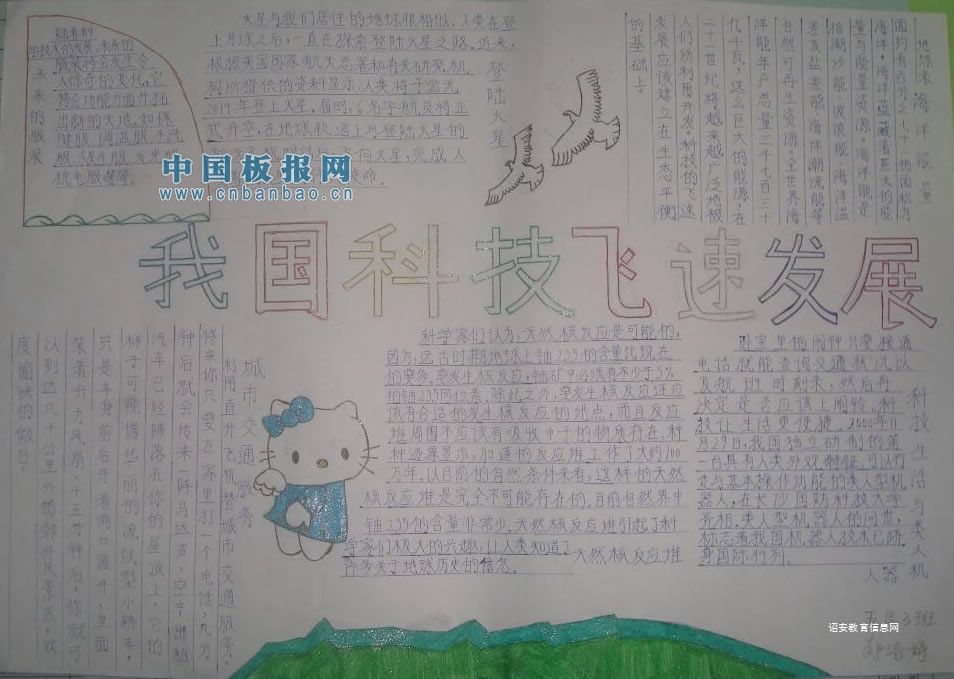 未来的服装
服装将会发生令
人惊奇的变化,它
将会功能方面开拓
抗电服等等。
火星与我们居住的地球很相似。人类在登
上月球之后,一直在探索登陆火星之路。近来,
根据美国国家航天总署和有关研究机
构所提供的资料显示:人类将于公元
2019年登上火星。届时,6名宇航员将正
式升空,在地球轨道上与登陆火星的
登陆火星
地球未来海洋能量
面约有百分之七十一的面积为
海洋,海洋蕴藏着巨大的能
量与能量资源。海洋能是
指潮汐能、波浪能、海洋温
差及盐差能、海洋潮流能等
自然可再生资源。全世界海
洋能年产总量三千七百三十
亿千瓦,这么巨大的能源,在
二十一世纪将越来越广泛地被
人们所利用开发。科技的飞速
发展应该建立在生态平衡
的基础上。
中国板报网
www.cnbanbao.cn
我国科技飞速发展
城市交通服务
利用直升飞机梦城市交通服务。
将来你只要在家里打一个电话,九分
钟后就会传来一阵马达声,空中出租
汽车已经降落在你的屋顶上,它的
样子可能像华丽的流线型小轿车,
只是车身前后开着两口圆井,里面
装着升力风扇。十五分钟后,你就可
以到达几十公里外的郊外风景区,欢
度愉快的假日。
科学家们认为:天然核反应是可能的,
因为:远古时期地球上铀235的含量比现在
的要多。要发生核反应,铀矿中必须有不少于3%
的铀235同位素。除此之外,要发生核反应还应
该有合适的发生核反应的地点,而且反应
堆周围不应该有吸收中子的物质存在。种
种迹象显示,加蓬的反应堆工作了大约100
万年,以目前的自然条件来看,这样的天然
核反应堆是完全不可能存在的,目前自然界中
铀235的含量非常少。天然核反应堆引起了科
学家们极大的兴趣,让人类知道了
许多关于地球历史的信息。
天然核反应堆
卧室里的闹钟只要接通
电话就能查询交通状况以
及航班时刻表,然后再
决定是否应该上闹铃,科
技让生活更便捷。2000年11
月29日,我国独立研制的第
一台具有人类外观特征、可以行
走与基本操作功能的类人型机
器人,在长沙国防科技大学
亮相。类人型机器人的问世,
标志着我国机器人技术已跻
身国际行列。
科技生活与类人机
器人
五年3班
诏安教育信息网